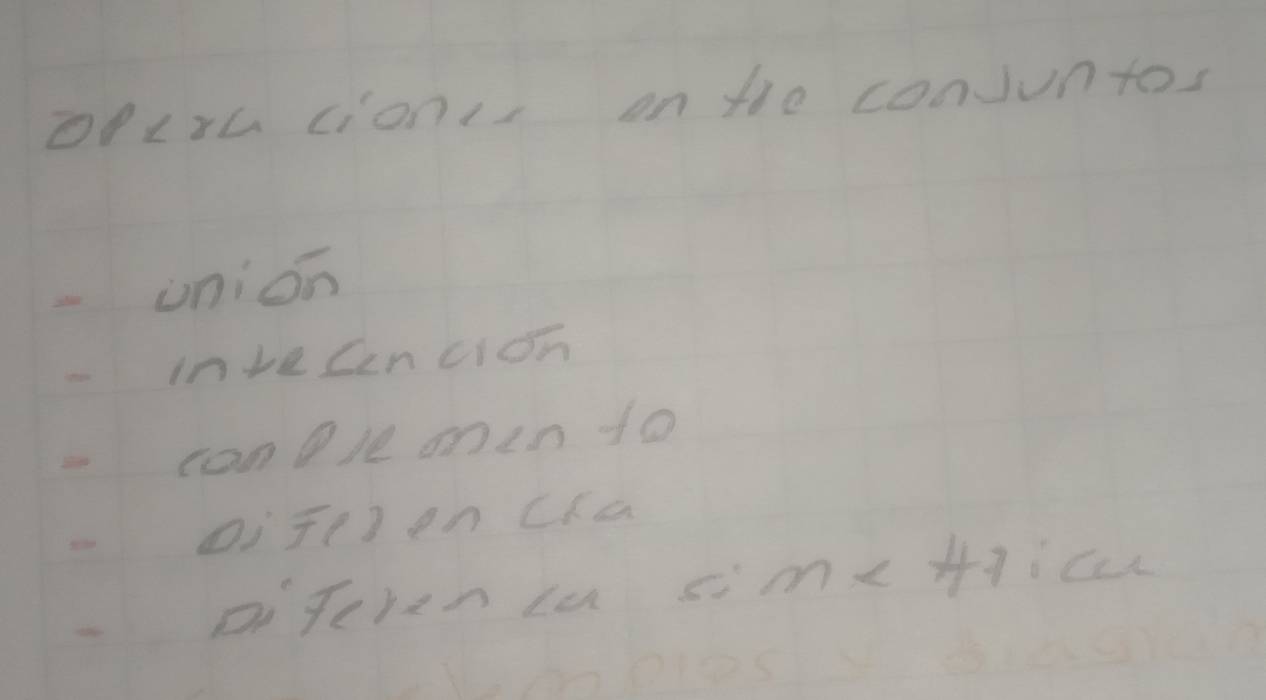 Operaciones entre conjuntos
- unión
- intesención
- conplemento
- Diferencia
- Diferenca simettrica